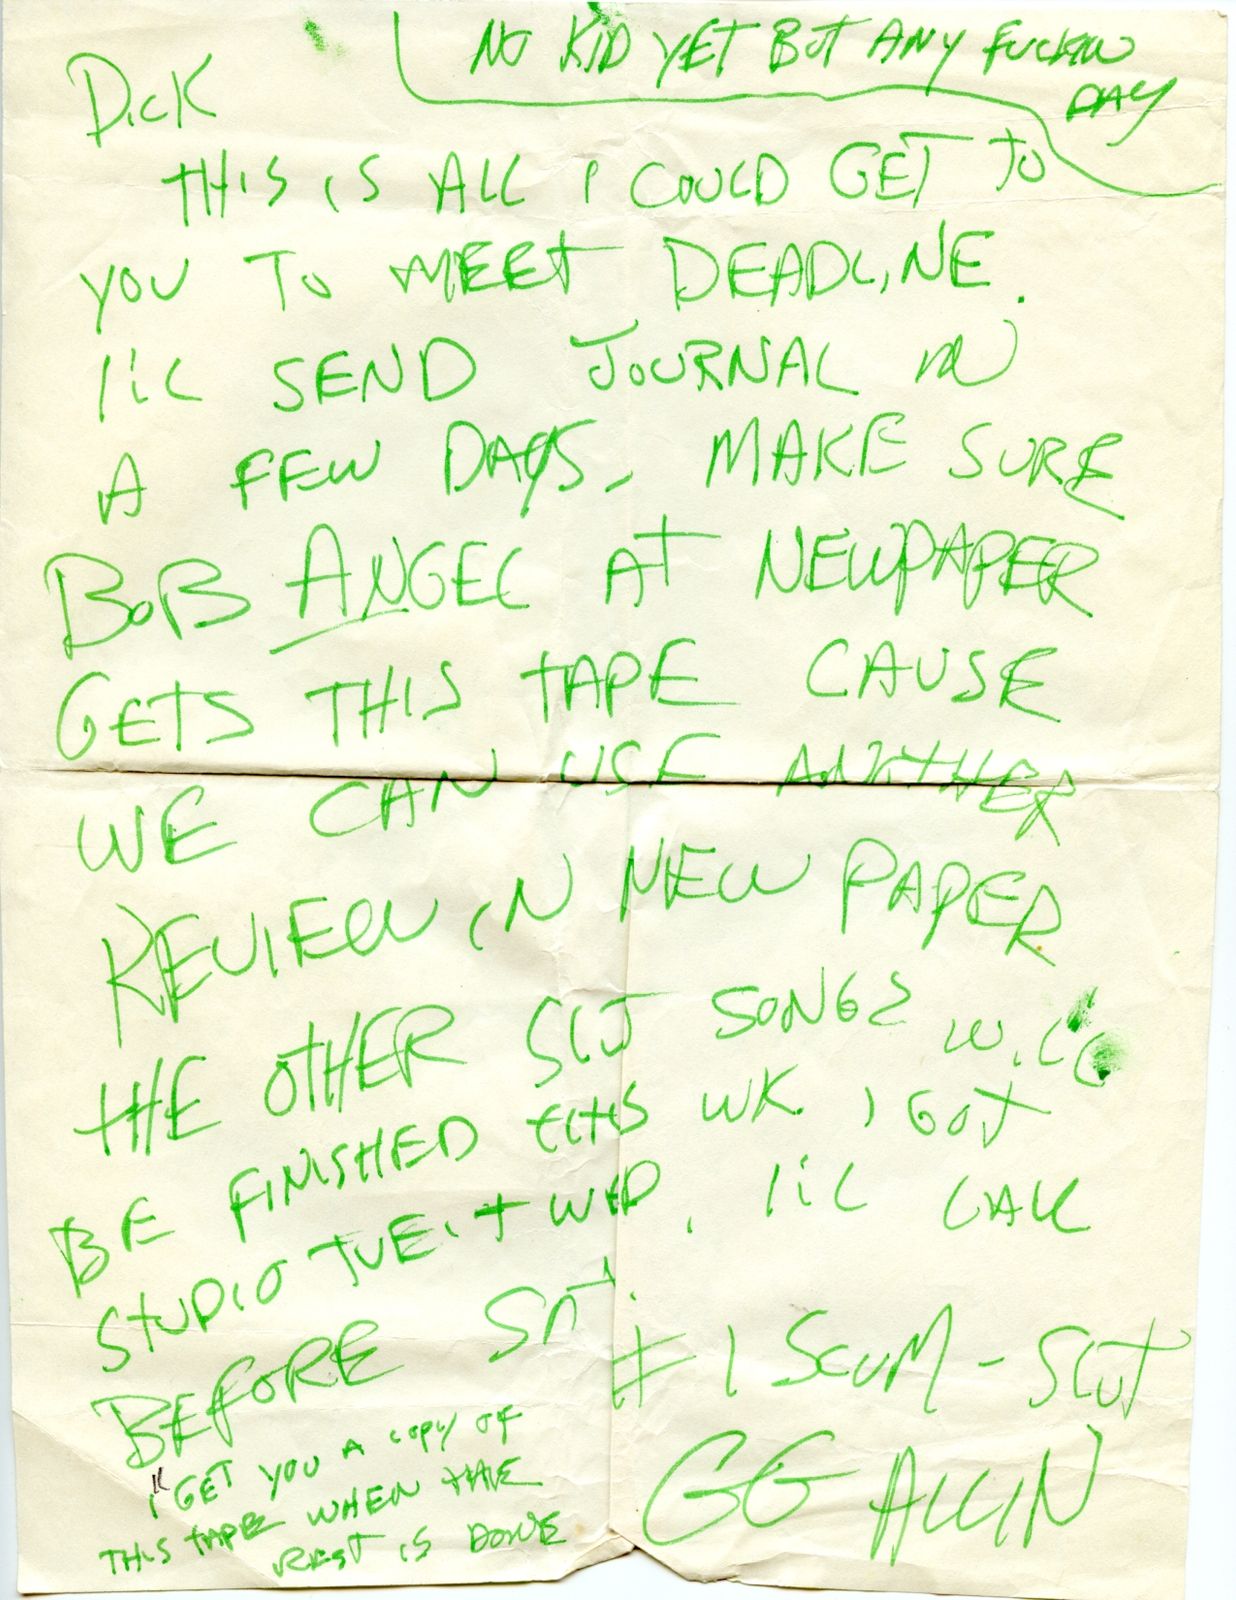 NO KID YET BUT ANY FUCKIN
DAY
DICK
THIS IS ALL I COULD GET TO
YOU TO MEET DEADLINE.
I'LL SEND JOURNAL IN
A FEW DAYS. MAKE SURE
BOB ANGEL AT NEWPAPER
GETS THIS TAPE CAUSE
WE CAN USE ANOTHER
REVIEW IN NEW PAPER
THE OTHER SONGS WILL
BE FINISHED THIS WK. I GOT
STUDIO TUES + WED. I'LL CALL
BEFORE SAT.
#1 SCUM - SLUT
GG ALLIN
I'LL GET YOU A COPY OF
THIS TAPE WHEN THE
REST IS DONE